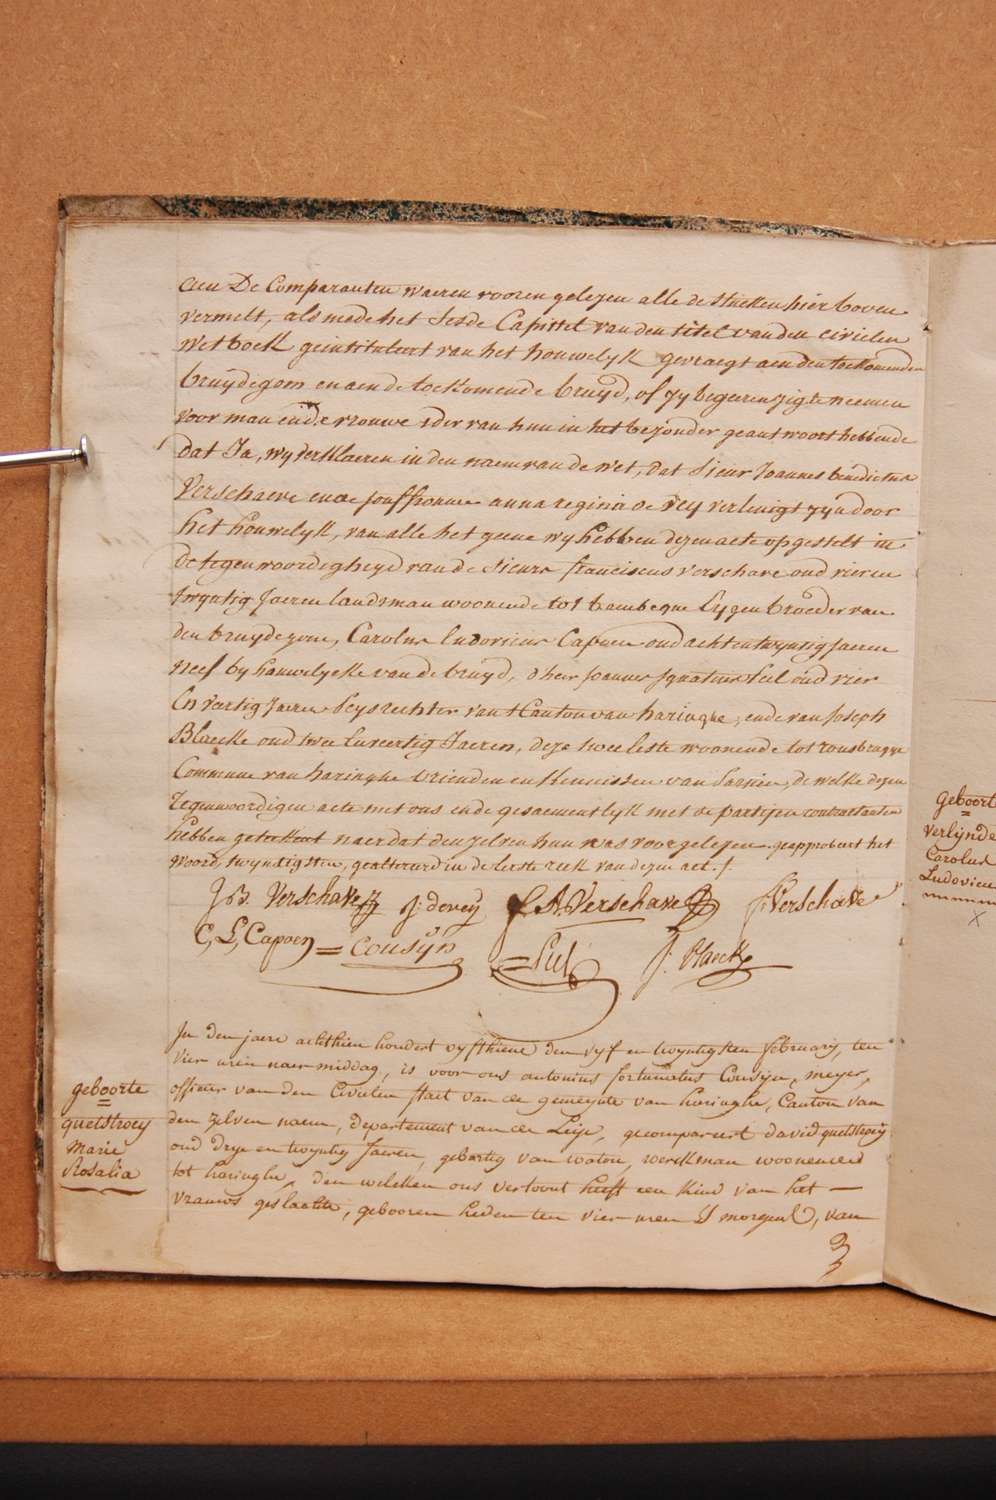 aen De Comparanten waeren vooren gelezen alle de stucken hier boven
vermelt, als mede het sesde Capittel van den titel van den civielen
Wetboek geintituleert van het houwelyk gevraegt aen den toekomenden
bruydegom en aen de toekomende bruyd, of zy begeeren zig te neemen
voor man ende vrouwe ider van hun in het bezonder geantwoort hebbende
dat Ja, wy verklaeren in den naem van de wet, dat sieur Joannes benedictus
Verschaeve ende jouffrouwe anna regina de vey vereenigt zyn door
het houwelyk, van alle het geene wy hebben dezen acte opgestelt in
De tegenwoordigheyd van de sieurs franciscus verschave oud vier en
twyntig Jaeren landsman woonende tot bambeque Eygen broeder van
den bruydegom, Carolus ludovicus Capoen oud acht en twyntig jaeren
neef by hauwelycke van de bruyd, d'heer joannes ignatius feil oud vier
En veertig Jaeren peysrechter van t Canton van haringhe, ende van joseph
Blaecke oud twee en veertig Jaeren, deze twee leste woonende tot rousbrugge
Commune van haringhe vrienden en kennissen van partien, de welke dezen
Tegenwoordigen acte met ons ende gesaementlyk met de partijen contractanten
hebben geteekent naer dat den zelven hun was voorgelezen. geapprobeert het
woord, twyntigsten, gealtereerd in de eerste reek van dezen act./.
J. B. Verschave J: devey F. A. Verschave J: Verschave
C, L, Capoen = cousyn = feil J. Blaecke
In den jaere achthien hondert vyfthiene den vyf en twyntigsten february, ten
vier uren naer middag, is voor ons antonius fortunatus Cousyn, meyer,
officier van den Civielen staet van de gemeynte van haringhe, Canton van
den zelven naem, departement van de Leije, gecompareert david quetstroey
oud drye en twyntig Jaeren, gebortig van watou, werckman woonende
tot haringhe, den welcken ons vertoont heeft een kind van het —
vrauws geslachte, gebooren heden ten vier uren 's morgens, van
geboorte
quetstroey
Marie
Rosalia
geboorte
verlynde
Carolus
Ludovicu